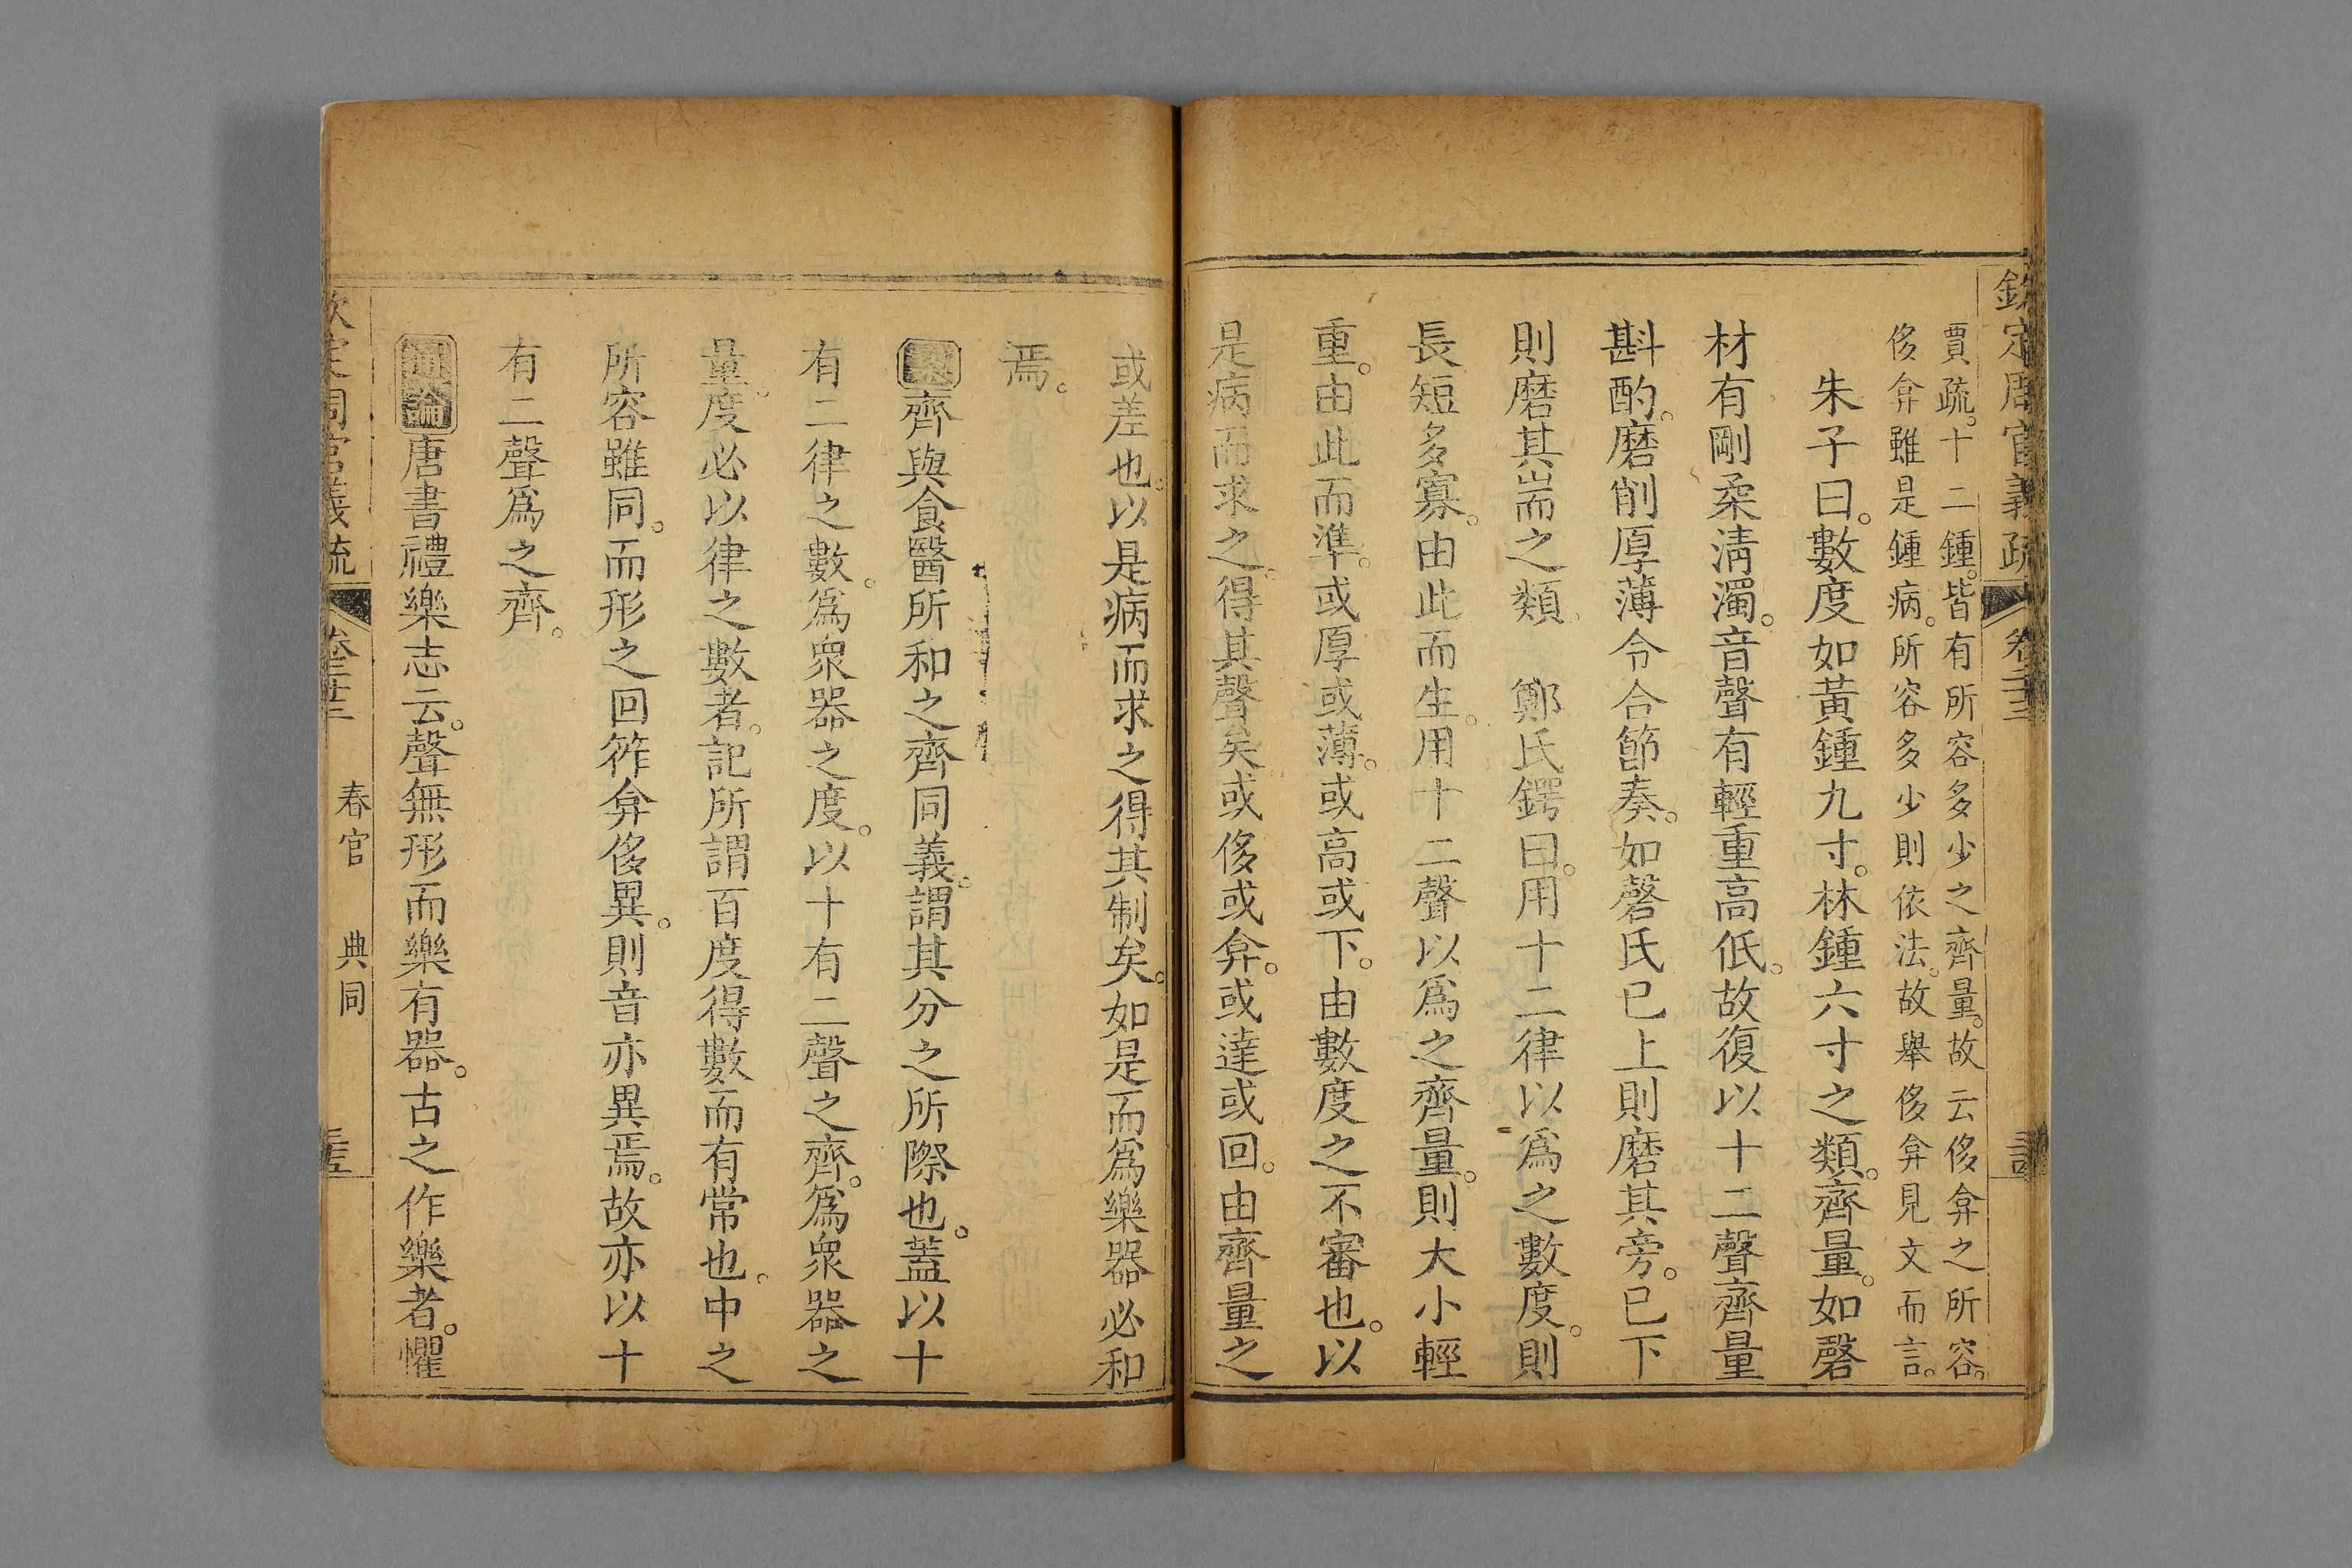 欽定周官義疏 卷三十三
賈疏。十二鍾。皆有所容多少之齊量。故云侈弇之所容。
侈弇雖是鍾病。所容多少則依法。故舉侈弇見文而言。
朱子曰。數度如黃鍾九寸。林鍾六寸之類。齊量。如磬
材有剛柔淸濁。音聲有輕重高低。故復以十二聲齊量
斟酌。磨削厚薄令合節奏。如磬氏已上則磨其旁。已下
則磨其耑之類 鄭氏鍔曰。用十二律以爲之數度。則
長短多寡。由此而生。用十二聲以爲之齊量。則大小輕
重。由此而準。或厚或薄。或高或下。由數度之不審也。以
是病而求之。得其聲矣或侈或弇。或達或回。由齊量之
或差也。以是病而求之得其制矣。如是而爲樂器必和
焉。
案齊與食醫所和之齊同義。謂其分之所際也。蓋以十
有二律之數。爲衆器之度。以十有二聲之齊。爲衆器之
量。度必以律之數者。記所謂百度得數而有常也。中之
所容雖同。而形之回筰弇侈異。則音亦異焉。故亦以十
有二聲爲之齊。
通論唐書禮樂志云。聲無形而樂有器。古之作樂者。懼
欽定周官義疏 春官 典同